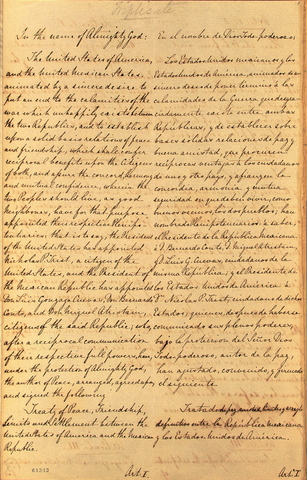 In the name of Almighty God:
The United States of America,
and the United Mexican States,
animated by a sincere desire to
put an end to the calamities of the
war which unhappily exists between
the two Republics, and to establish
upon a solid basis relations of peace
and friendship, which shall confer
reciprocal benefits upon the Citizens
of both, and assure the concord, harmony
and mutual confidence, wherein the
two Peoples should live, as good
Neighbours, have for that purpose
appointed their respective Plenipo-
tentiaries, that is to say, the President
of the United States has appointed
Nicholas P. Trist, a citizen of the
United States, and the President of
the Mexican Republic has appointed
Don Luis Gonzaga Cuevas, Don Bernardo
Couto, and Don Miguel Atristain,
citizens of the said Republic; who,
after a reciprocal communication
of their respective full powers, have,
under the protection of Almighty God,
the author of Peace, arranged, agreed upon,
and signed the following
Treaty of Peace, Friendship,
Limits and Settlement between the
United States of America and the Mexican
Republic.
Art: I.
En el nombre de Dios Todo poderoso:
Los Estados Unidos mexicanos y los
Estados Unidos de América, animados de un
sincero deseo de poner término a las
calamidades de la Guerra que desgra-
ciadamente existe entre ambas
Repúblicas, y de establecer sobre
bases sólidas relaciones de paz y
buena amistad, que procuren
recíprocas ventajas a los ciudadanos
de uno y otro pays, y afianzen la
concordia, armonía y mutua
seguridad en que deben vivir, como
buenos vecinos, los dos pueblos; han
nombrado Plenipotenciarios a saber,
el Presidente de la República Mexicana
a D. Bernardo Couto, D. Miguel Atristain,
y D. Luis G. Cuevas, ciudadanos de la
misma República; y el Presidente de
los Estados Unidos de América a
Dn Nicolas P. Trist, ciudadano de dichos
Estados; quienes, después de haberse
comunicado sus plenos poderes,
bajo la protección del Señor Dios
Todo poderoso, autor de la paz,
han ajustado, convenido, y firmado
el siguiente
Tratado de paz, amistad, límites y arreglo
definitivo entre la República mexicana
y los Estados Unidos de América.
Art. I
61313